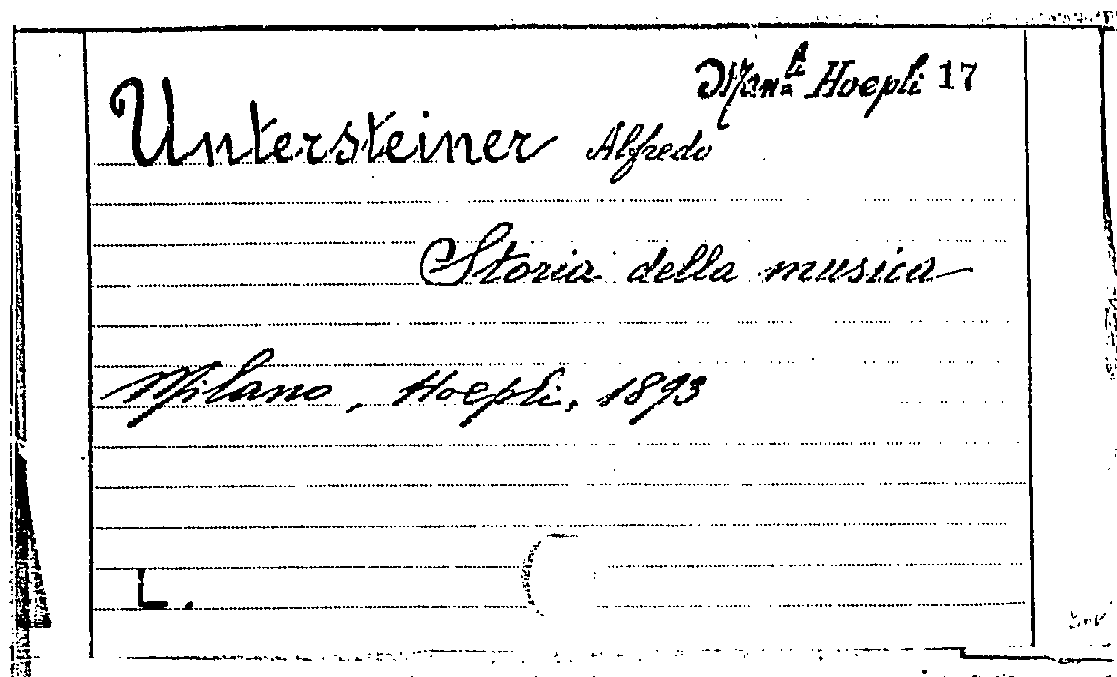 Man.li Hoepli 17
Untersteiner Alfredo
Storia della musica
Milano, Hoepli, 1893
L.